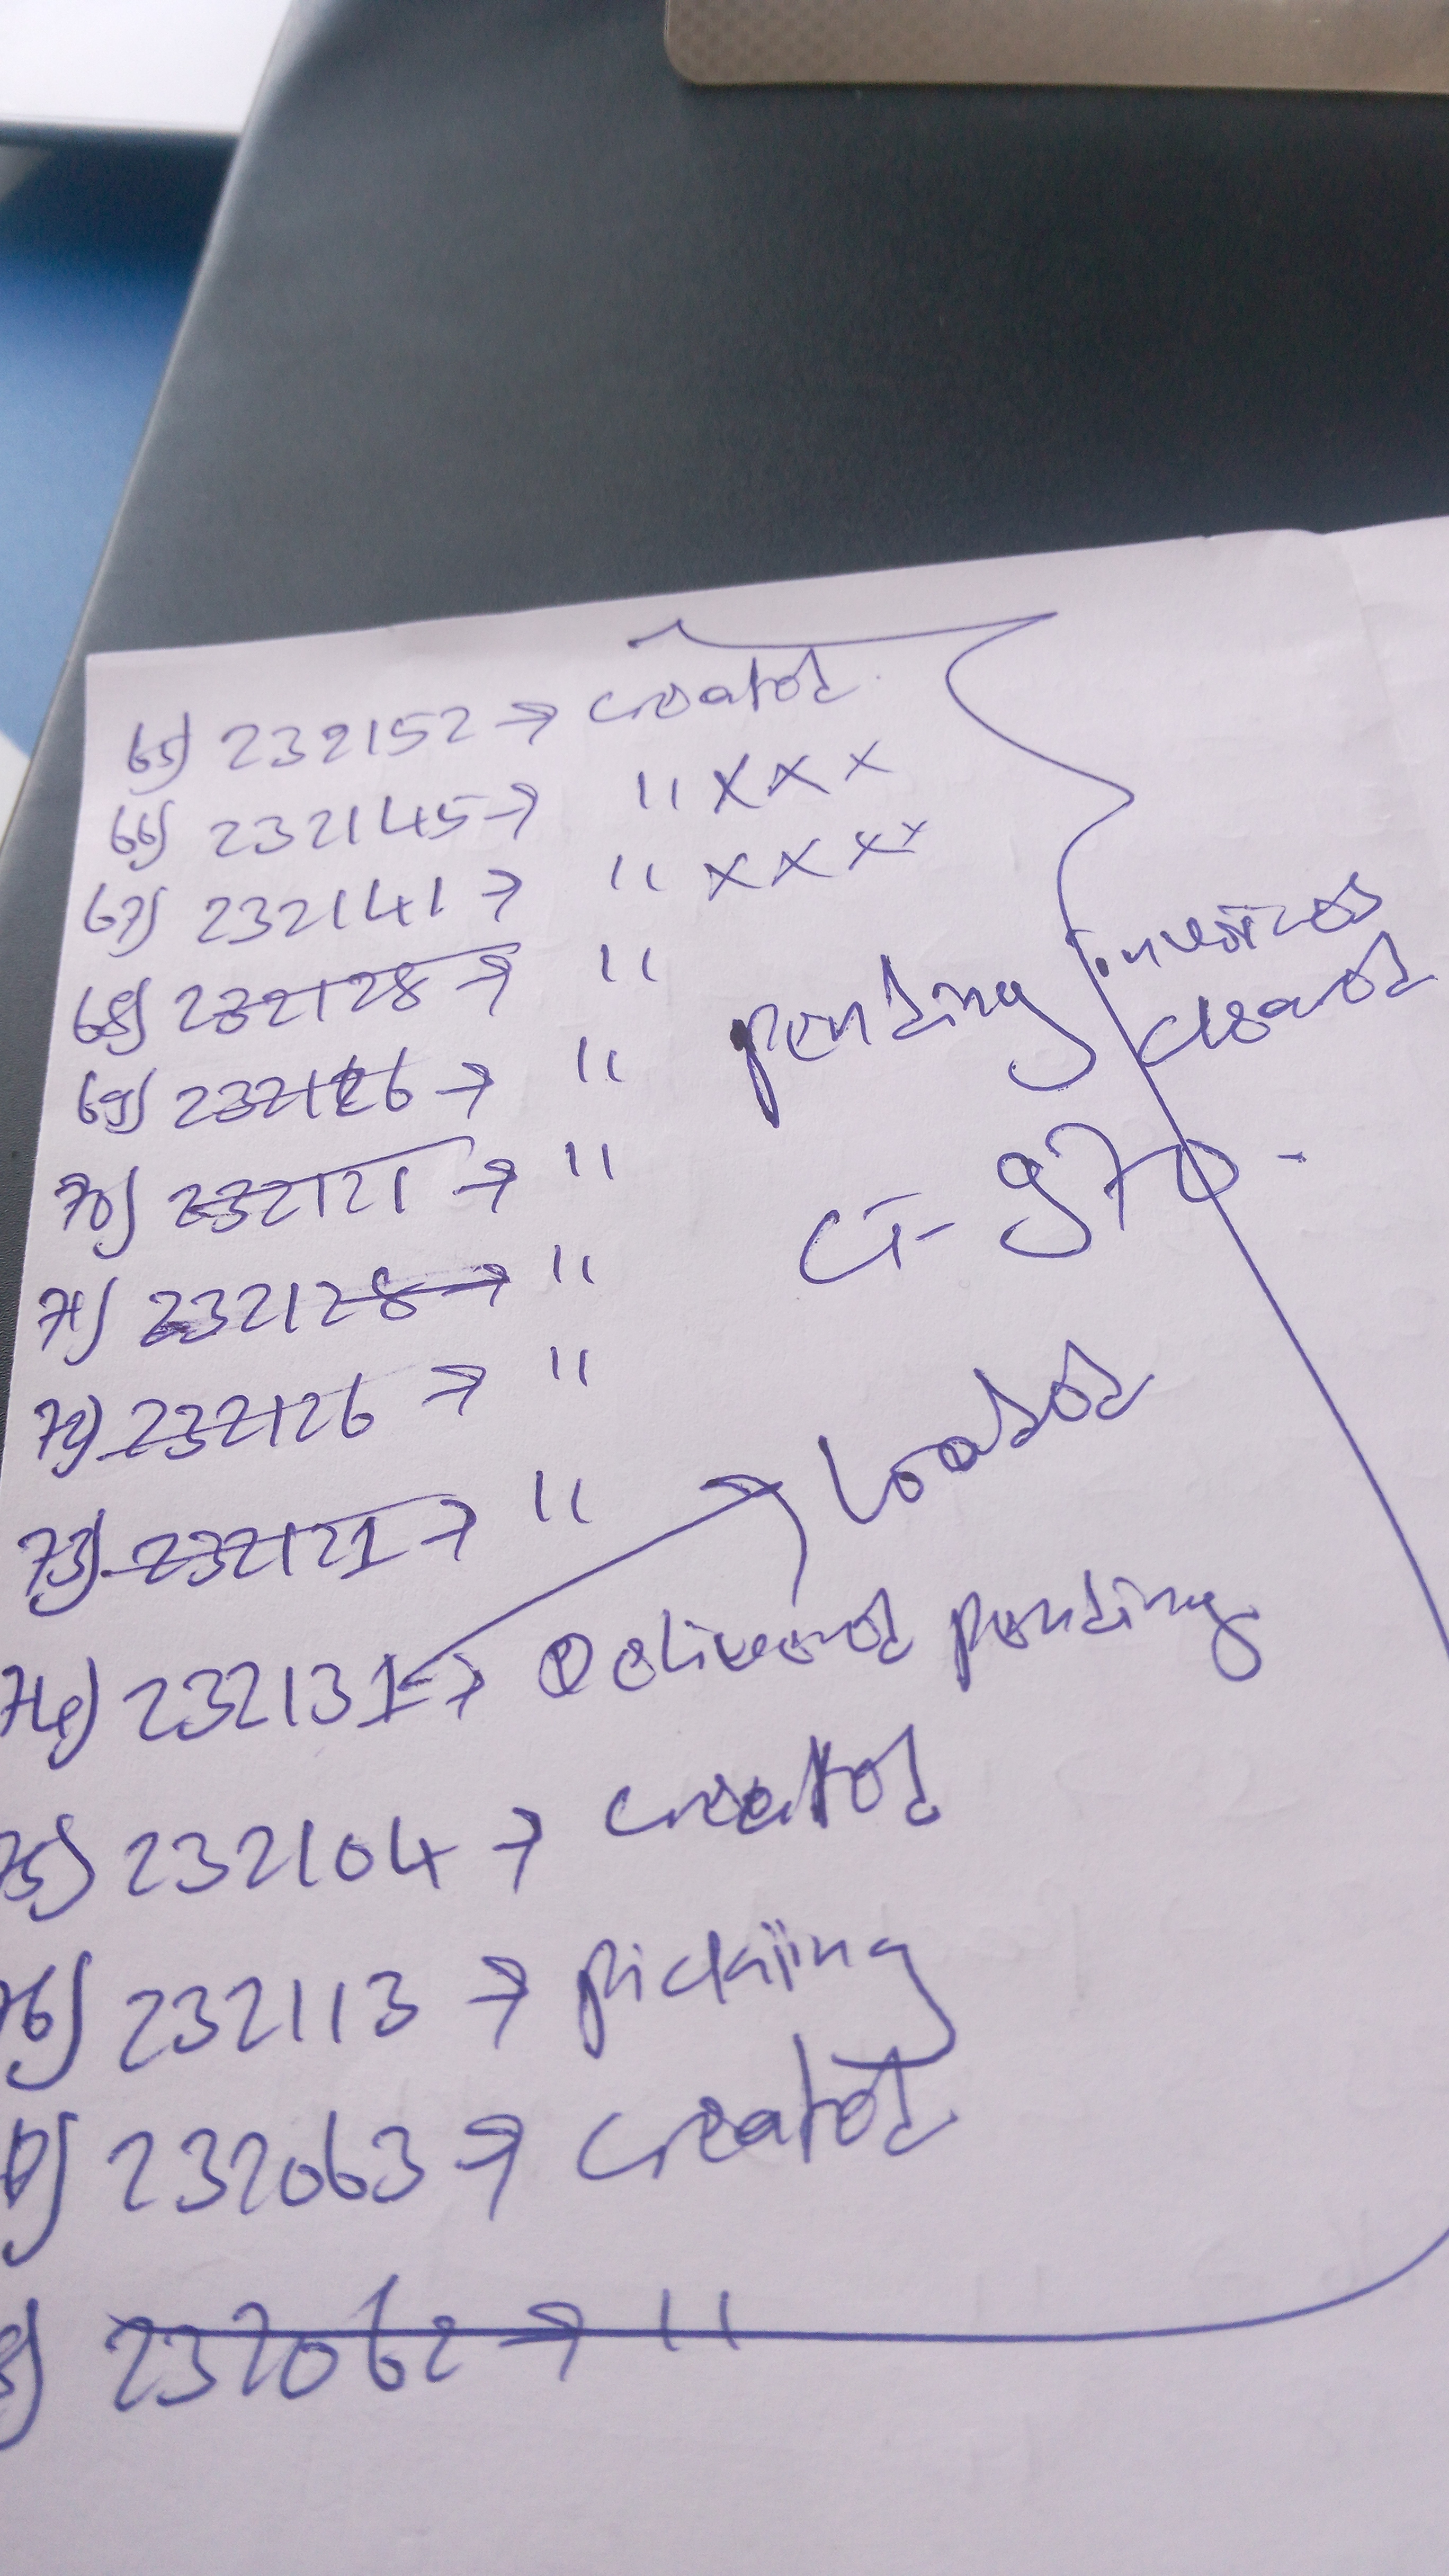 65) 232152 → created
66) 232145 → " XXX
67) 232141 → " XXXX
68) 232128 → "
69) 232126 → "
pending invoices
cleared
70) 232121 → "
CT- 970 -
71) 232128 → "
72) 232126 → "
73) 232121 → "
Loaded
74) 232131 → Delivered pending
75) 232104 → created
76) 232113 → pickiing
232063 → created
232062 → "